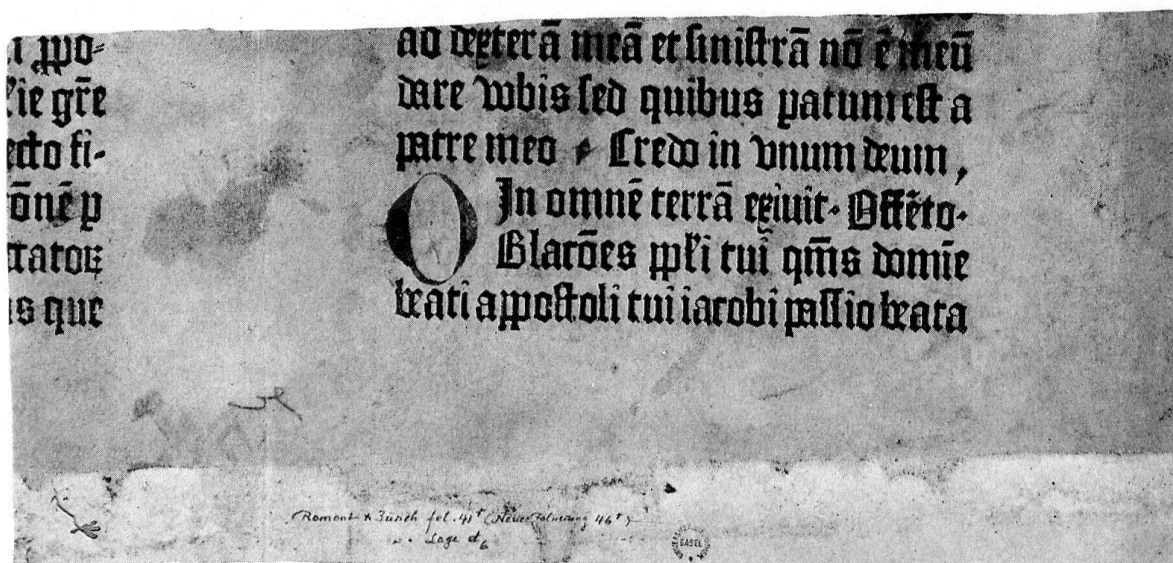 ppo-
lie gr̄e
ecto fi-
ōnē p
ctatoꝝ
as que
ad dexterā meā et sinistrā nō ē meū
dare vobis sed quibus patum est a
patre meo Credo in vnum deum,
In omnē terrā exiuit. Offēto.
O Blacōes ppl'i tui qm̄s domīe
beati appostoli tui iacobi passio beata
Romont & Zürich fol. 41r (Neue Foliierung 46r)
Lage d6
BASEL